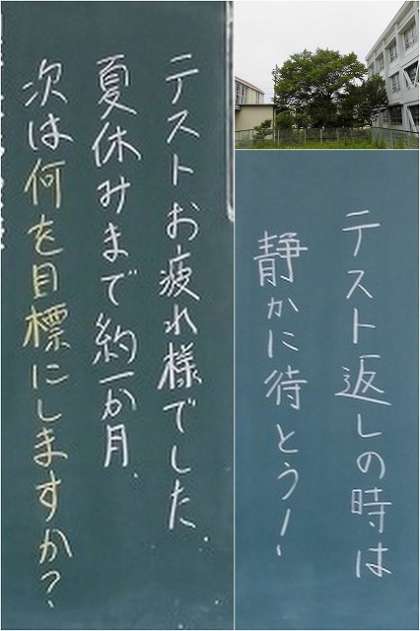 テストお疲れ様でした。
夏休みまで約一か月。
次は何を目標にしますか?
テスト返しの時は
静かに待とう!